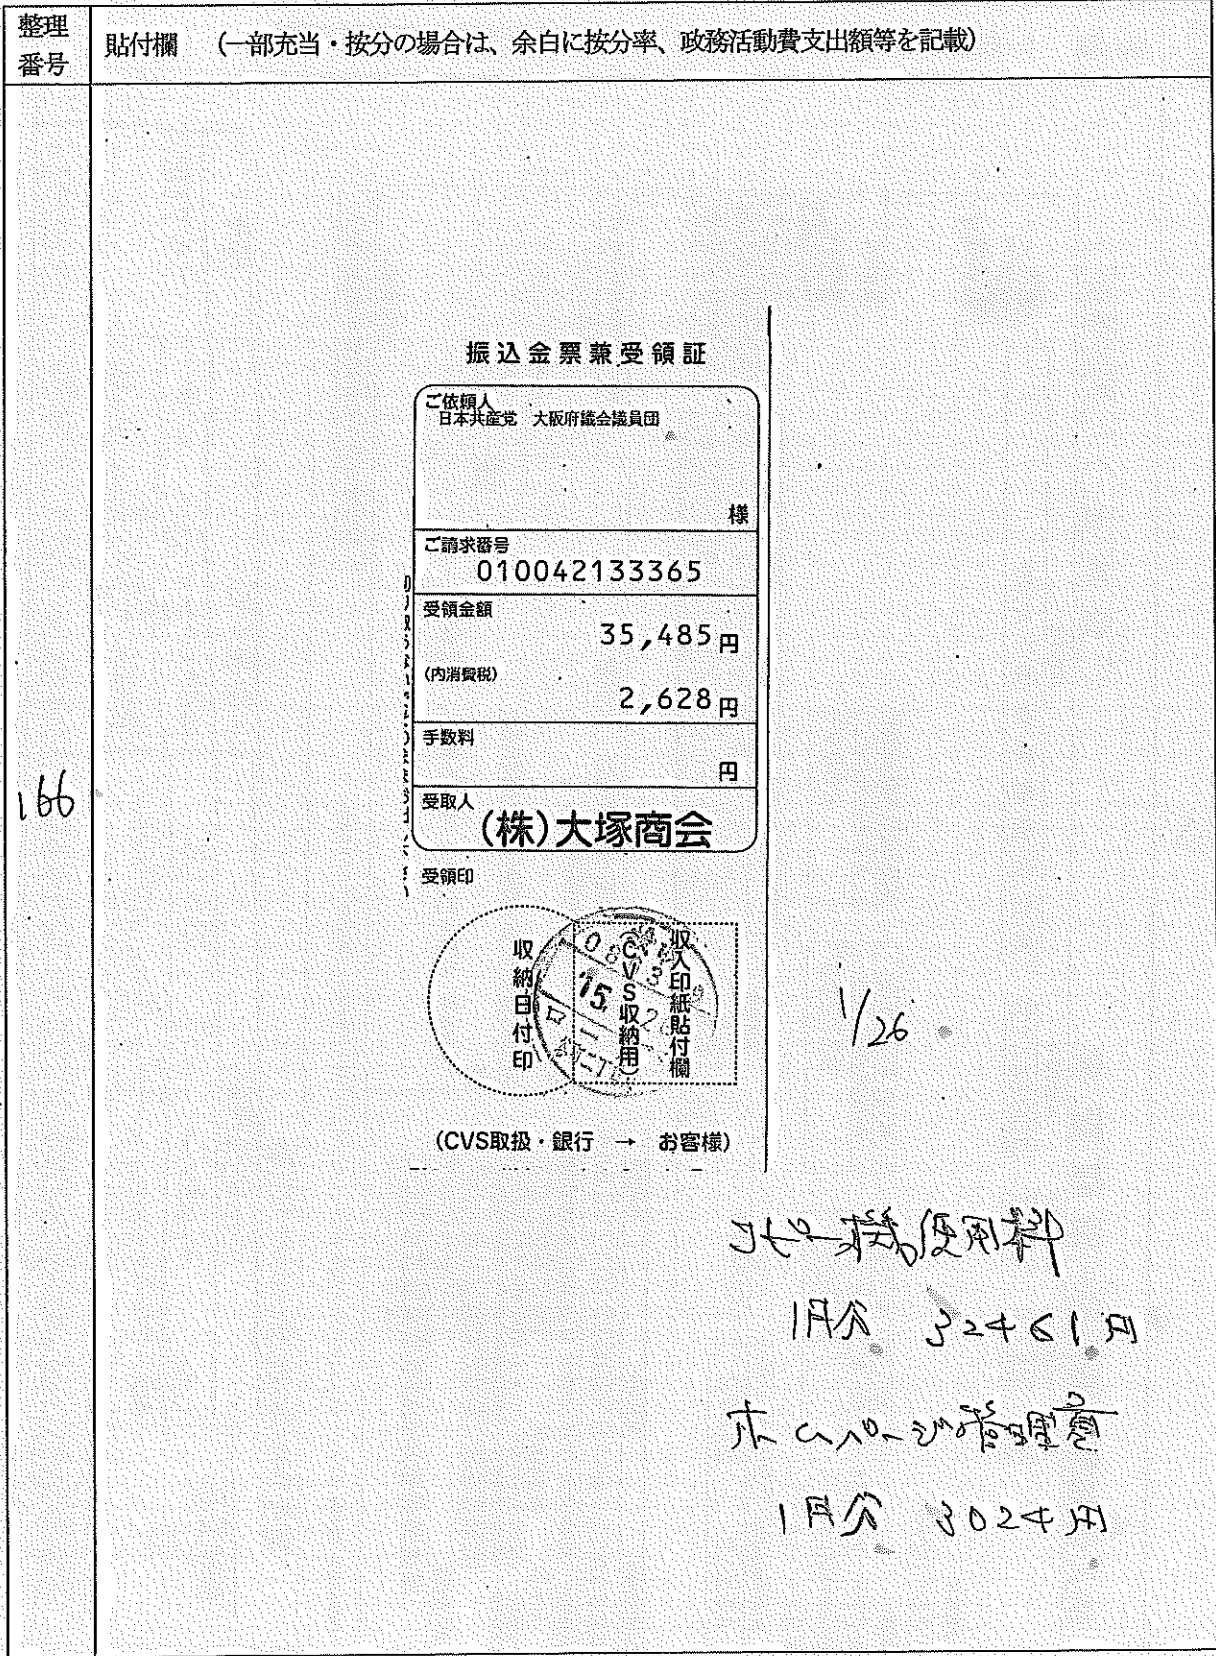 整理
番号
貼付欄 (一部充当・按分の場合は、余白に按分率、政務活動費支出額等を記載)
166
振込金票兼受領証
ご依頼人
日本共産党 大阪府議会議員団
様
ご請求番号
010042133365
受領金額
35,485円
(内消費税)
2,628円
手数料
円
受取人
(株)大塚商会
受領印
収納日付印
収入印紙貼付欄
(CVS収納用)
15
1/26
(CVS取扱・銀行 → お客様)
コピー機使用料
1月分 32461円
ホームページ管理費
1月分 3024円